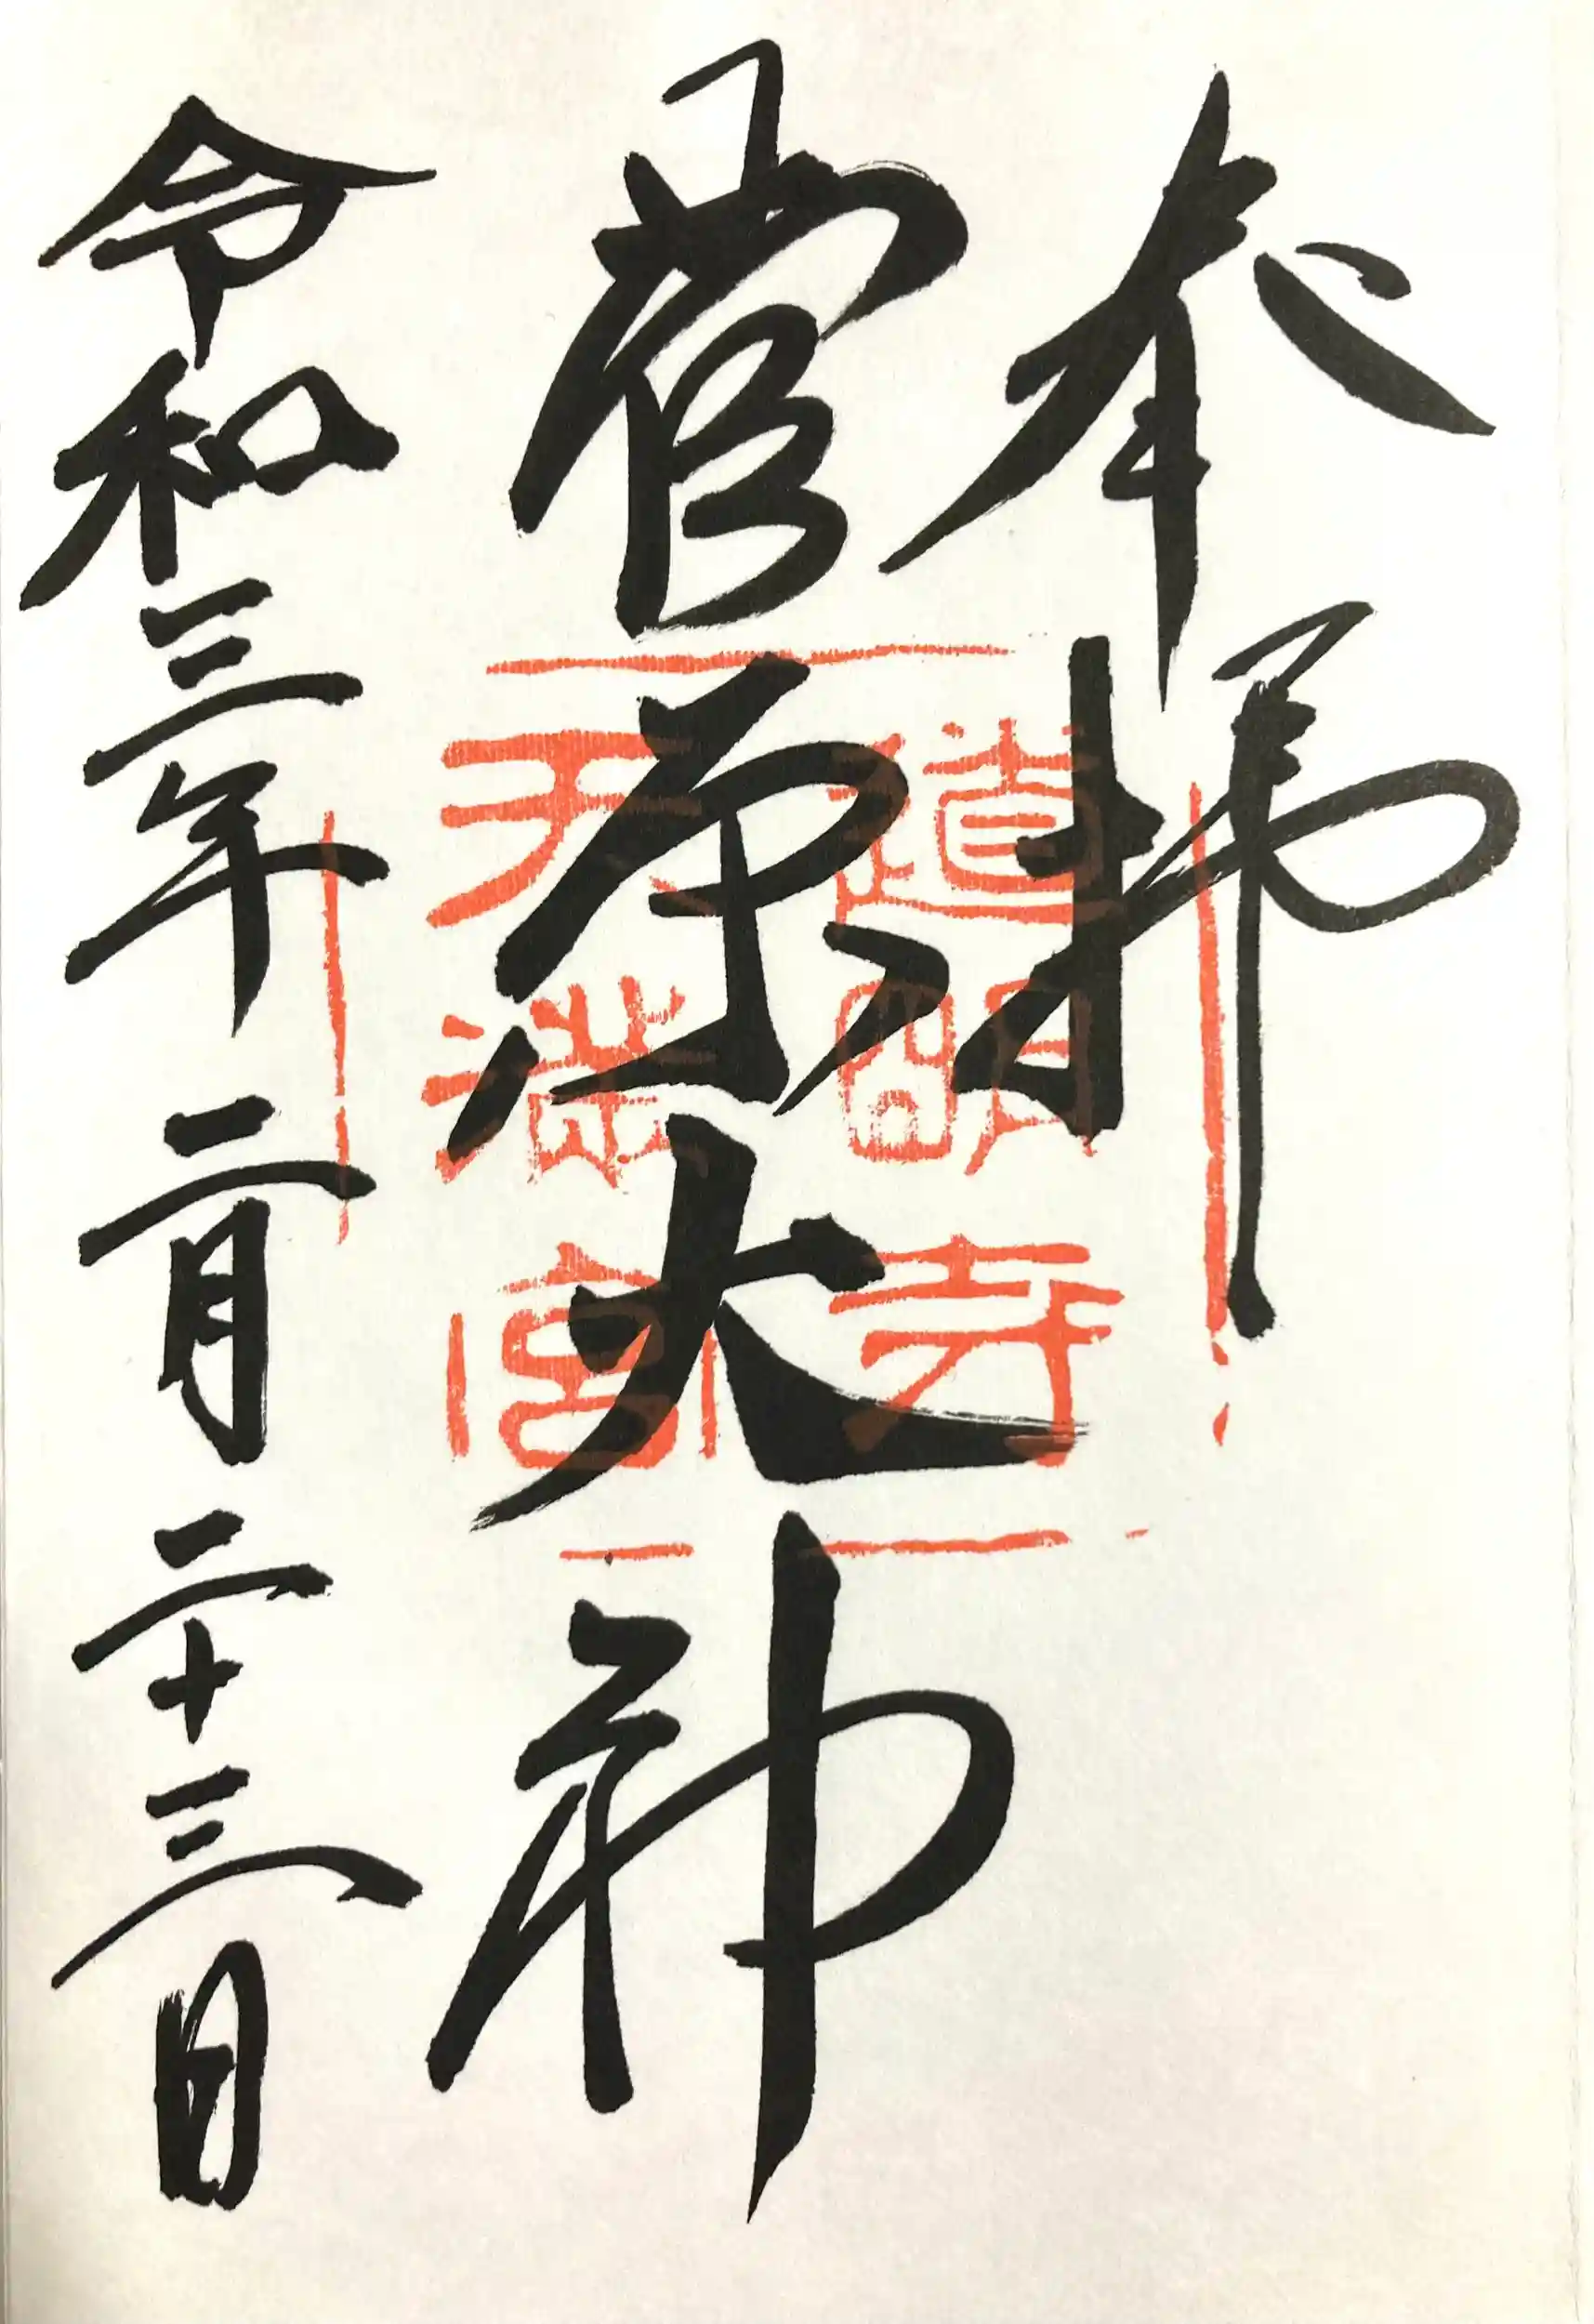 奉拝
菅原大神
道明寺
天満宮
令和三年二月二十三日